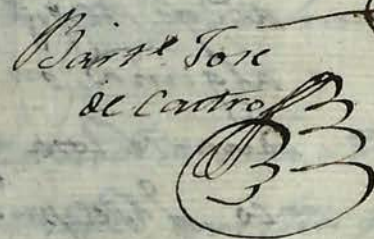 Bart.e Jose
de Castro